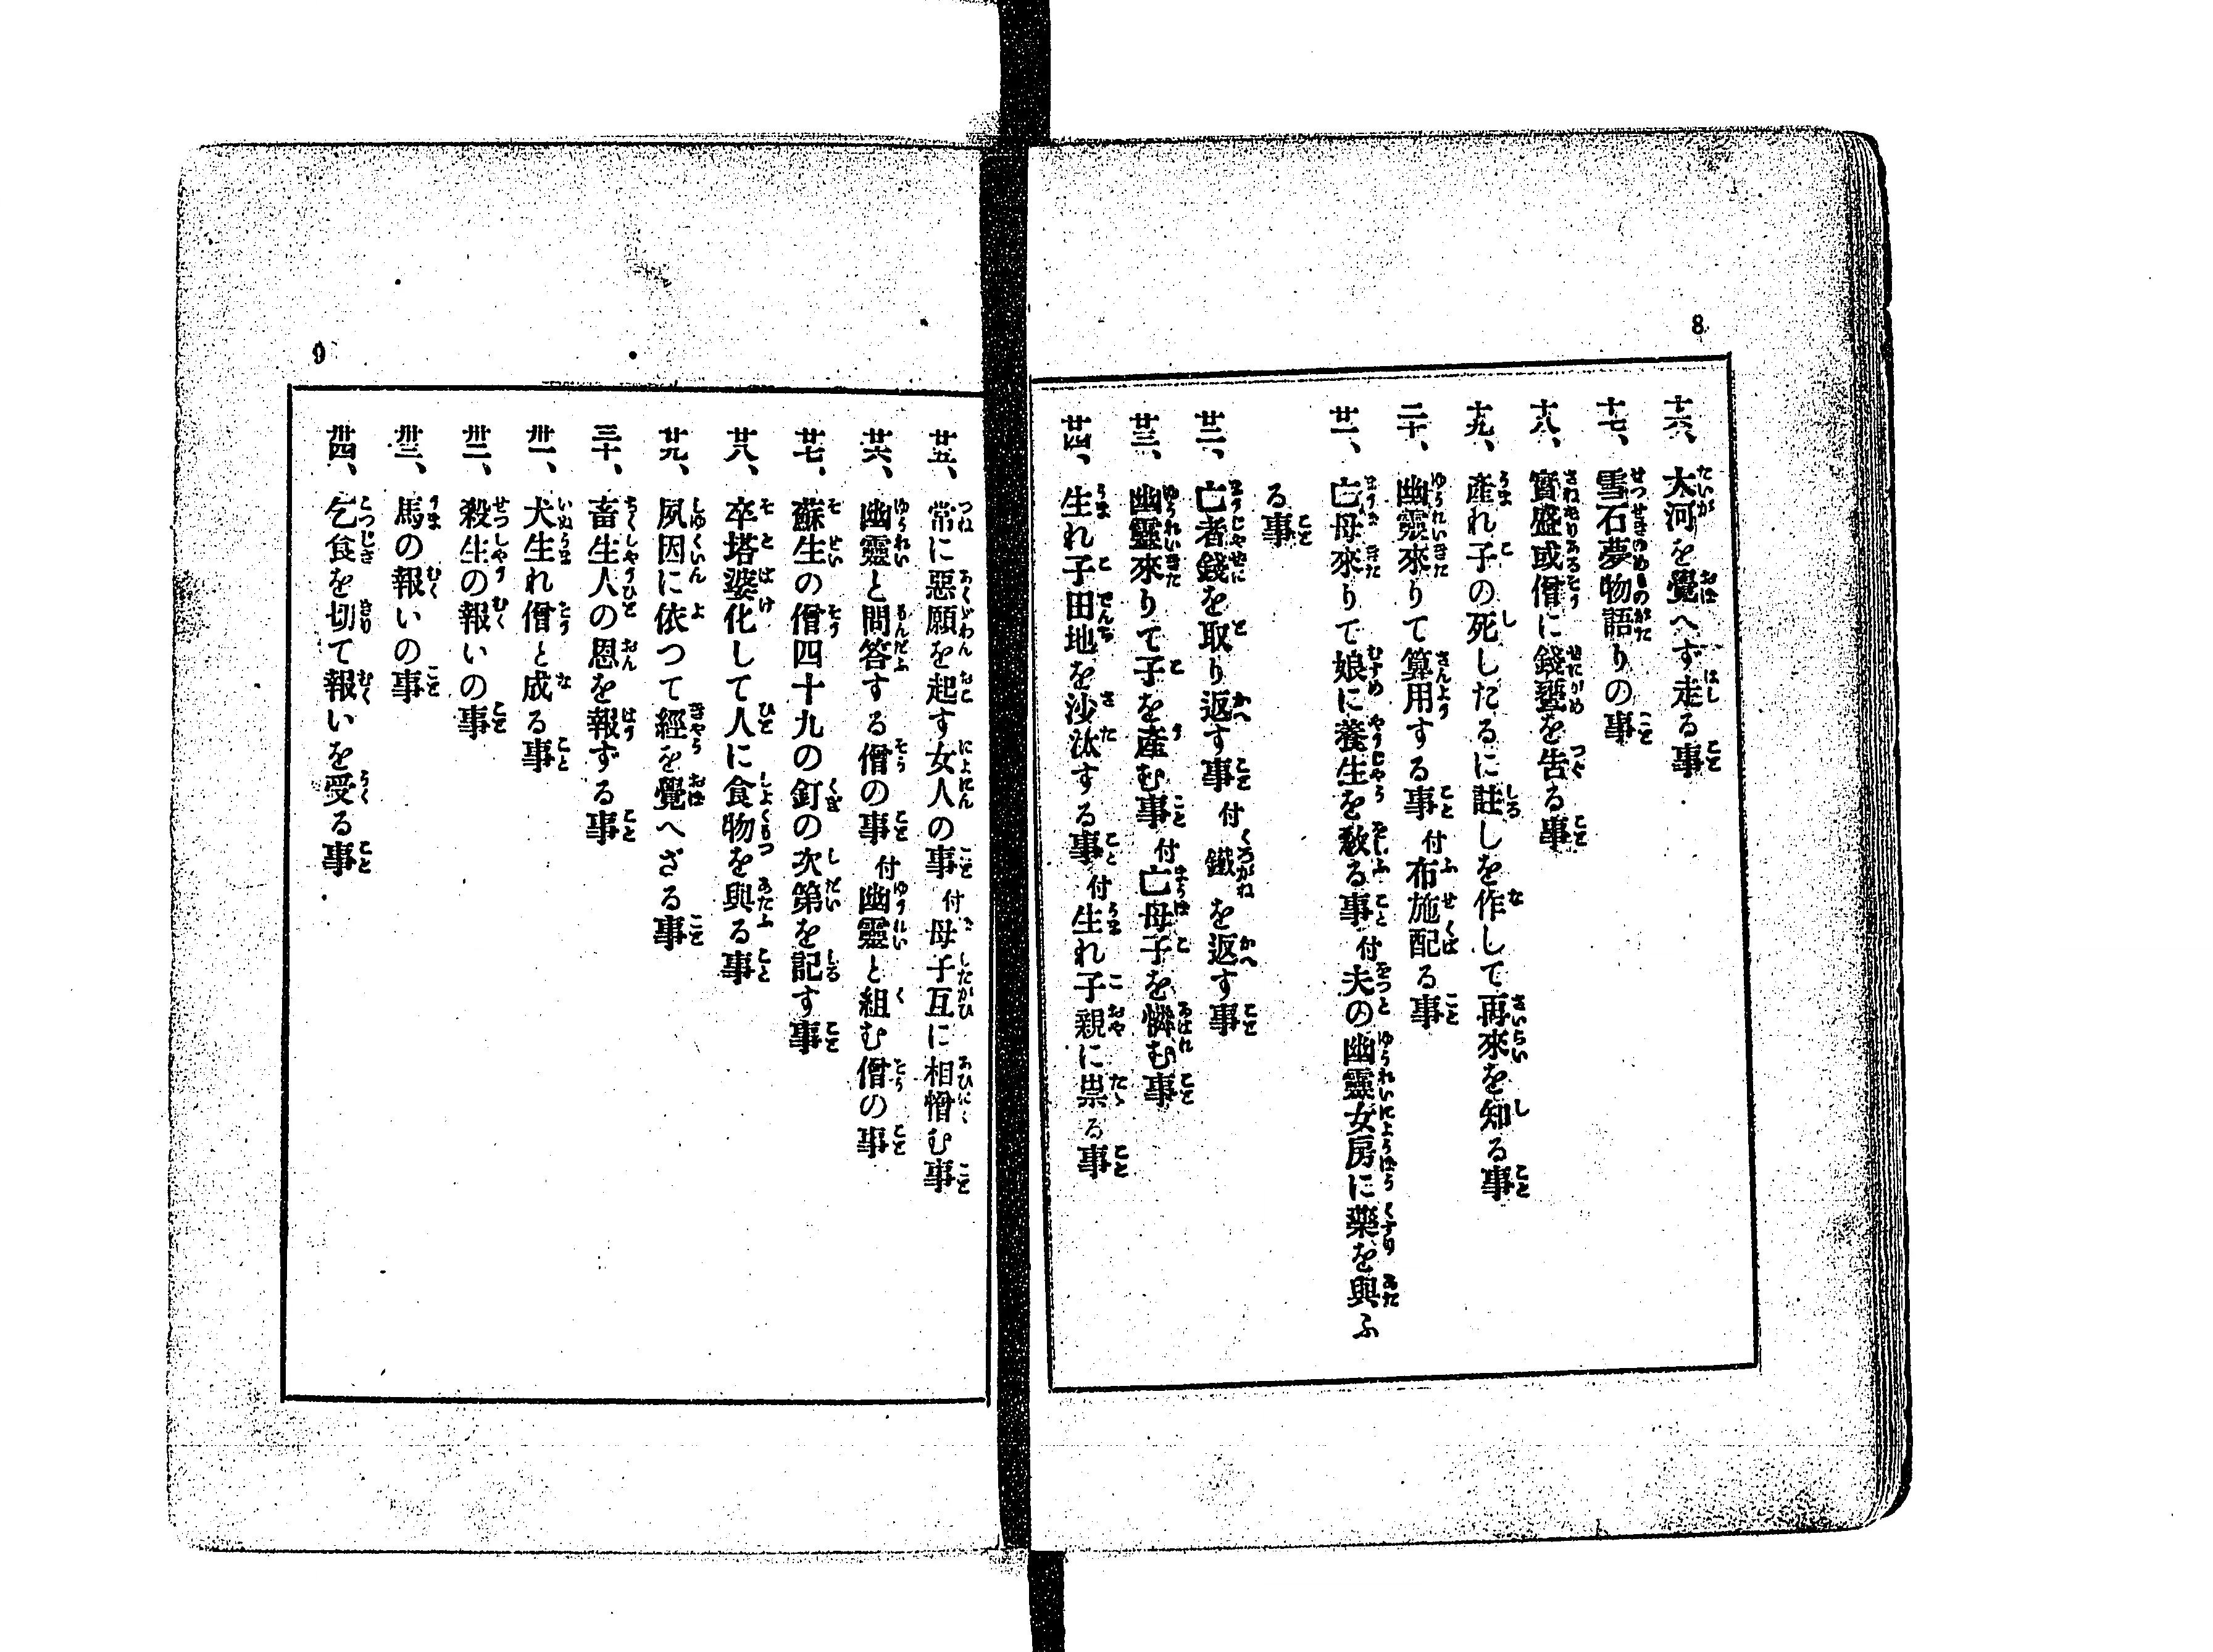 8
十六、大河を覺へず走る事
十七、雪石夢物語りの事
十八、實盛或僧に錢甕を告る事
十九、產れ子の死したるに註しを作して再來を知る事
二十、幽靈來りて算用する事 付 布施配る事
廿一、亡母來りて娘に養生を敎る事 付 夫の幽靈女房に藥を與ふ
る事
廿二、亡者錢を取り返す事 付 鐵を返す事
廿三、幽靈來りて子を產む事 付 亡母子を憐む事
廿四、生れ子田地を沙汰する事 付 生れ子親に祟る事
9
廿五、常に惡願を起す女人の事 付 母子互に相憎む事
廿六、幽靈と問答する僧の事 付 幽靈と組む僧の事
廿七、蘇生の僧四十九の釘の次第を記す事
廿八、卒塔婆化して人に食物を與る事
廿九、夙因に依つて經を覺へざる事
三十、畜生人の恩を報ずる事
卅一、犬生れ僧と成る事
卅二、殺生の報いの事
卅三、馬の報いの事
卅四、乞食を切て報いを受る事